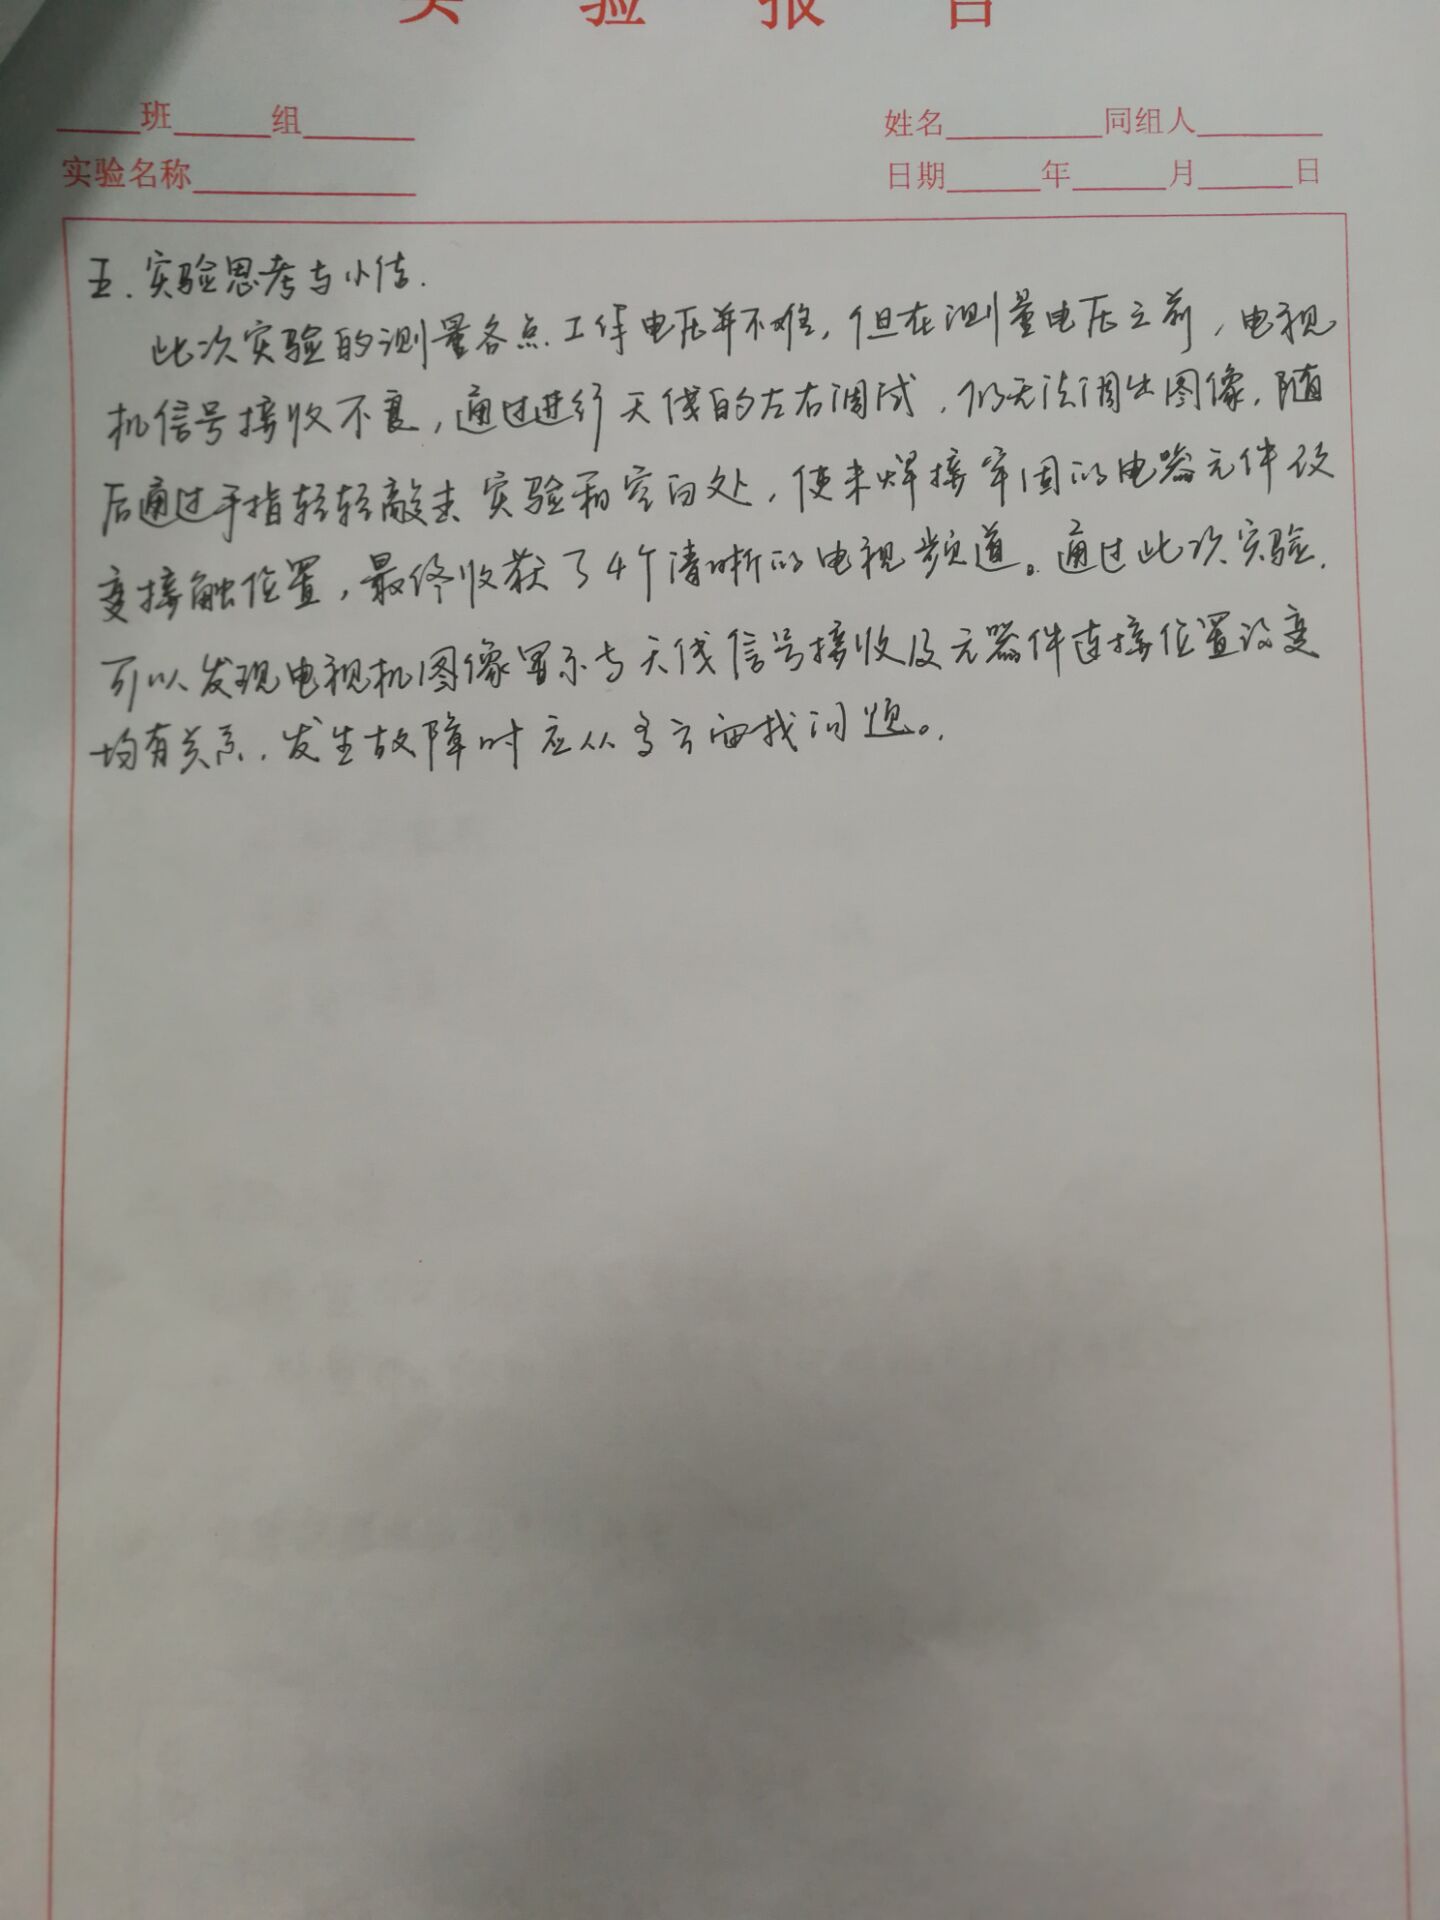 实验报告
班 组
姓名 同组人
实验名称
日期 年 月 日
五.实验思考与小结.
此次实验的测量各点工作电压并不难,但在测量电压之前,电视
机信号接收不良,通过进行天线的左右调试,仍无法调出图像.随
后通过手指轻轻敲击实验箱空白处,使未焊接牢固的电器元件改
变接触位置,最终收获了4个清晰的电视频道。通过此次实验,
可以发现电视机图像显示与天线信号接收及元器件连接位置改变
均有关系,发生故障时应从多方面找问题。